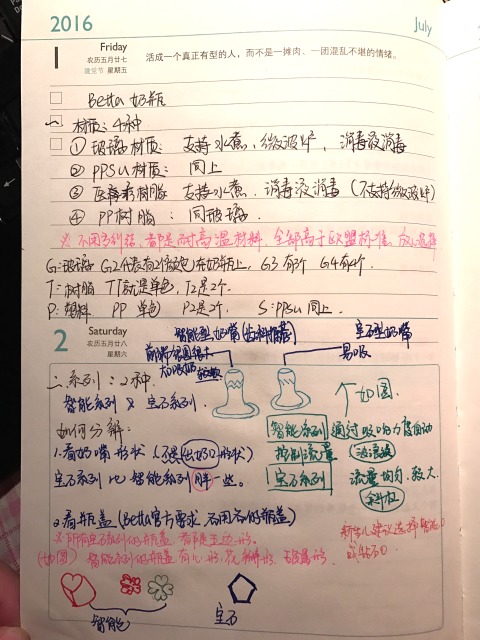 2016
July
1
Friday
农历五月廿七
建党节 星期五
活成一个真正有型的人，而不是一摊肉、一团混乱不堪的情绪。
Betta 奶瓶
一 材质：4种
① 玻璃材质： 支持水煮，微波炉，消毒液消毒
② PPSU材质： 同上
③ 医疗树脂 支持水煮、消毒液消毒（不支持微波炉）
④ PP树脂：同玻璃.
※ 不用多纠结，都是耐高温材料，全部高于欧盟标准，放心选择
G:玻璃 G2代表有2个 在奶瓶上，G3有3个 G4有4个.
T：树脂 T 就是单色，T2是2个.
P：塑料 PP 单色 P2是2个. S：PPSU 同上.
2
Saturday
农历五月廿八
星期六
智能型奶嘴
宝石型奶嘴
易吸
二.系列：2种.
智能系列 & 宝石系列.
个如图.
如何分辨：
智能系列 通过吸吮力度自动
控制流量
1.看奶嘴形状（ 形状）
宝石系列 流量均匀，较大.
宝石系列比智能系列胖一些。
2.看瓶盖（Betta官方需求 不同的瓶盖）
※所有宝石系列的瓶盖 都是五边形.
（如图） 智能系列的瓶盖有心形，花
新生儿建议选择智能
智能
宝石